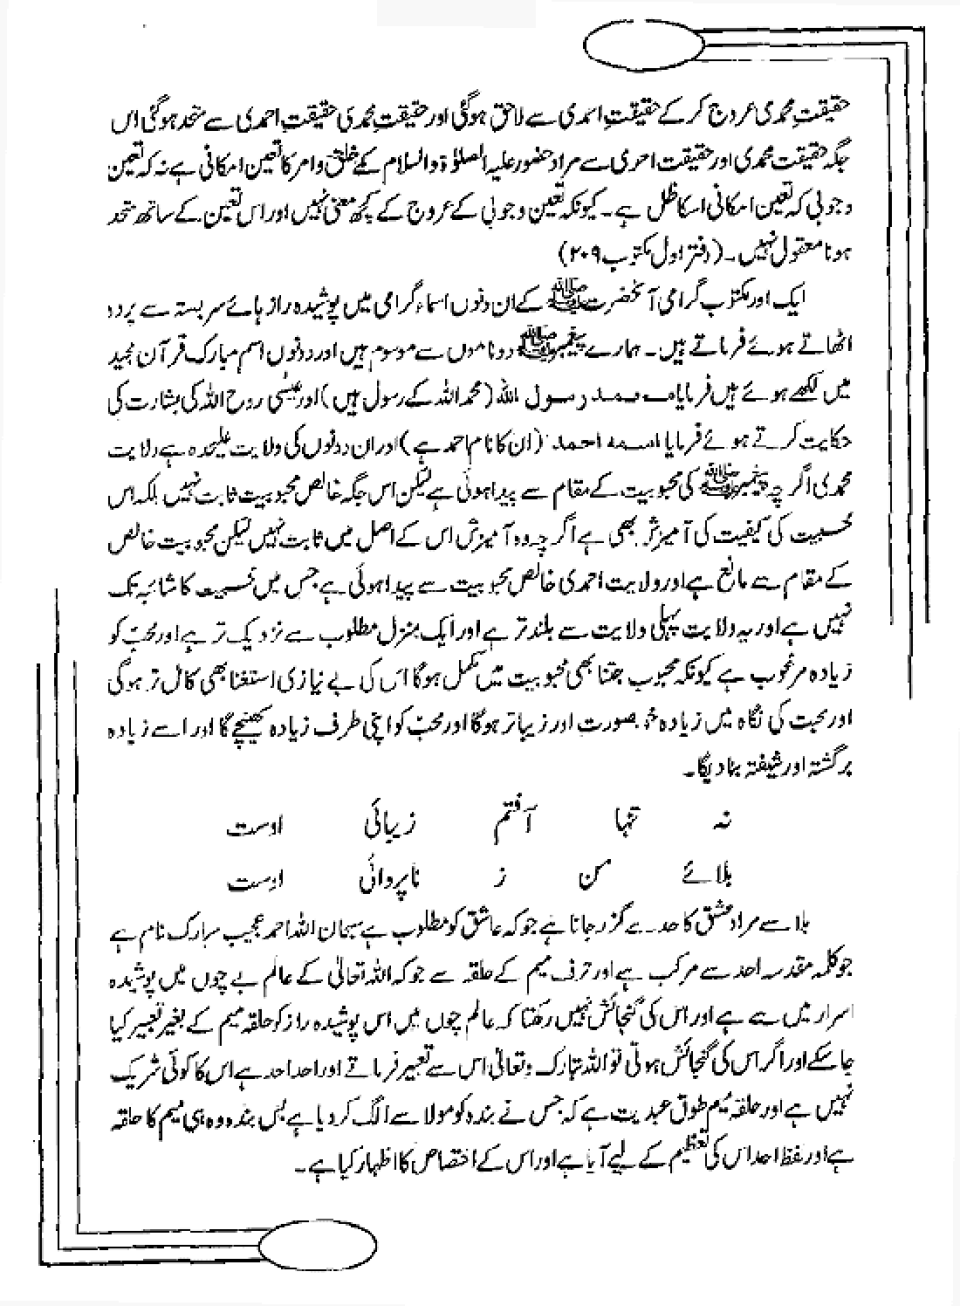 حقیقتِ محمدی عروج کر کے حقیقتِ احمدی سے لاحق ہوگئی اور حقیقتِ محمدی حقیقتِ احمدی سے متحد ہوگئی اس
جگہ حقیقت محمدی اور حقیقت احمدی سے مراد حضور علیہ الصلوٰۃ والسلام کے خلق وامر کا تعین امکانی ہے نہ کہ تعین
وجوبی کہ تعین امکانی اسکا ظل ہے۔ کیونکہ تعین وجوبی کے عروج کے کچھ معنی نہیں اور اس تعین کے ساتھ متحد
ہونا معقول نہیں۔ (دفتر اول مکتوب ۲۰۹)
ایک اور مکتوب گرامی آنحضرت ﷺ کے ان دونوں اسماء گرامی میں پوشیدہ راز ہائے سربستہ سے پردہ
اٹھاتے ہوئے فرماتے ہیں۔ ہمارے پیغمبر ﷺ دو ناموں سے موسوم ہیں اور دونوں اسم مبارک قرآن مجید
میں لکھے ہوئے ہیں فرمایا محمد رسول اللہ (محمد اللہ کے رسول ہیں) اور عیسٰی روح اللہ کی بشارت کی
حکایت کرتے ہوئے فرمایا اسمہ احمد (ان کا نام احمد ہے) اور ان دونوں کی ولایت علیحدہ ہے ولایت
محمدی اگرچہ پیغمبر ﷺ کی محبوبیت کے مقام سے پیدا ہوئی ہے لیکن اس جگہ خالص محبوبیت ثابت نہیں بلکہ اس
محسبیت کی کیفیت کی آمیزش بھی ہے اگرچہ وہ آمیزش اس کے اصل میں ثابت نہیں لیکن محبوبیت خالص
کے مقام سے مانع ہے اور ولایت احمدی خالص محبوبیت سے پیدا ہوئی ہے جس میں محسبیت کا شائبہ تک
نہیں ہے اور یہ ولایت پہلی ولایت سے بلند تر ہے اور ایک منزل مطلوب سے نزدیک تر ہے اور محبّ کو
زیادہ مرغوب ہے کیونکہ محبوب جتنا بھی محبوبیت میں مکمل ہوگا اس کی بے نیازی استغنا بھی کامل تر ہوگی
اور محبت کی نگاہ میں زیادہ خوبصورت اور زیباتر ہوگا اور محبّ کو اپنی طرف زیادہ کھینچے گا اور اسے زیادہ
برگشتہ اور شیفتہ بنا دیگا۔
نہ تنہا آفتم زیبائی اوست
بلائے من ز ناپروائی اوست
بلا سے مراد عشق کا حد سے گزر جانا ہے جو کہ عاشق کو مطلوب ہے سبحان اللہ احمد عجیب مبارک نام ہے
جو کلمہ مقدسہ احد سے مرکب ہے اور حرف میم کے حلقہ سے جو کہ اللہ تعالیٰ کے عالم بے چوں میں پوشیدہ
اسرار میں سے ہے اور اس کی گنجائش نہیں رکھتا کہ عالم چوں میں اس پوشیدہ راز کو حلقہ میم کے بغیر تعبیر کیا
جا سکے اور اگر اس کی گنجائش ہوتی تو اللہ تبارک وتعالیٰ اس سے تعبیر فرماتے اور احد احد ہے اس کا کوئی شریک
نہیں ہے اور حلقہ میم طوق عبدیت ہے کہ جس نے بندہ کو مولا سے الگ کر دیا ہے بس بندہ وہ ہی میم کا حلقہ
ہے اور لفظ احد اس کی تعظیم کے لیے آیا ہے اور اس کے اختصاص کا اظہار کیا ہے۔